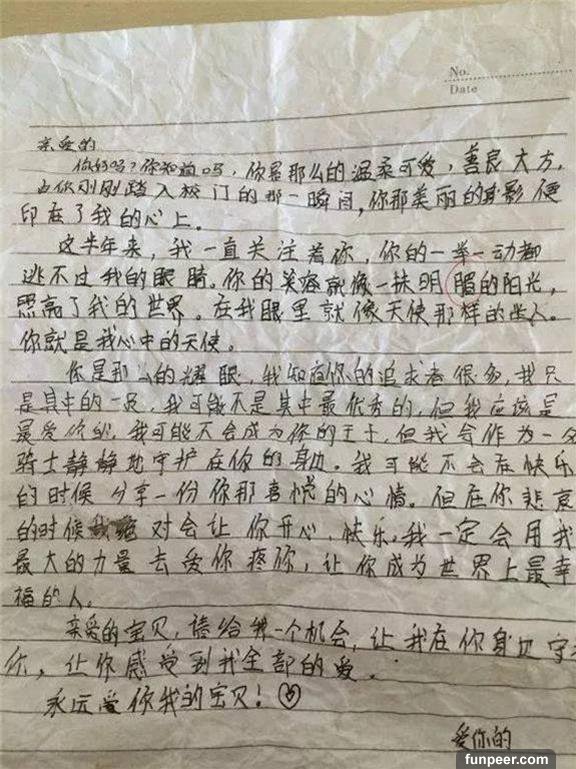 No.
Date
亲爱的
你好吗?你知道吗,你是那么的温柔可爱,善良大方,
当你刚刚踏入校门的那一瞬间,你那美丽的身影便
印在了我的心上。
这半年来,我一直关注着你,你的一举一动都
逃不过我的眼睛。你的笑容就像一抹明媚的阳光,
照亮了我的世界。在我眼里就像天使那样的迷人。
你就是我心中的天使。
你是那么的耀眼,我知道你的追求者很多,我只
是其中的一员,我可能不是其中最优秀的,但我应该是
最爱你的,我可能不会成为你的王子,但我会作为一名
骑士静静地守护在你的身边。我可能不会在快乐
的时候分享一份你那喜悦的心情。但在你悲哀
的时候我绝对会让你开心,快乐。我一定会用我
最大的力量去爱你疼你,让你成为世界上最幸
福的人。
亲爱的宝贝,请给我一个机会,让我在你身边守
你,让你感受到我全部的爱。
永远爱你我的宝贝!
爱你的
funpeer.com